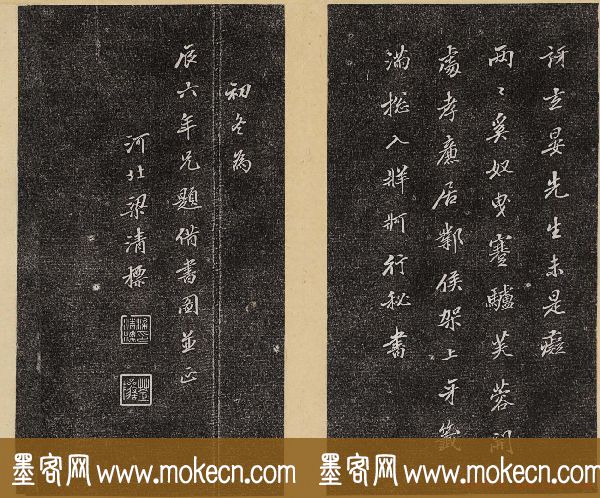 訝玄晏先生未是癡
兩〻奚奴曳蹇驢芙蓉開
處孝廉居鄴侯架上牙籤
滿總入牂牁行秘書
初冬為
辰六年兄題借書圖並正
河北梁清標
墨客网 www.mokecn.com
墨客网 www.mokecn.com